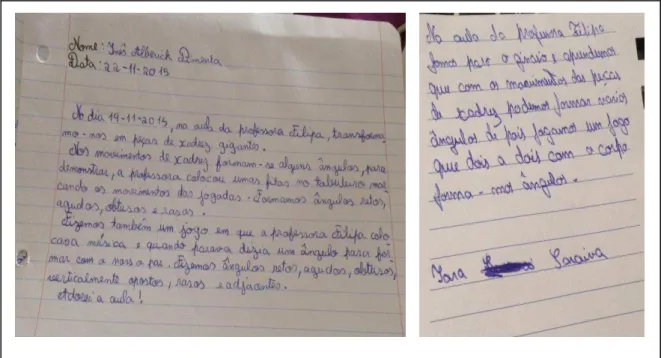 Nome: Inês Alberich Pimenta
Data: 22-11-2015
No dia 19-11-2015, na aula da professora Filipa, transforma-
mo-nos em peças de xadrez gigantes.
Nos movimentos de xadrez formam-se alguns ângulos, para
demonstrar, a professora colocou umas fitas no tabuleiro mar
cando os movimentos das jogadas. Formamos ângulos retos,
agudos, obtusos e rasos.
Fizemos também um jogo em que a professora Filipa colo
cava música e quando parava dizia um ângulo para for
mar com o nosso par. Fizemos ângulos retos, agudos, obtusos,
verticalmente opostos, rasos e adjacentes.
Adorei a aula!
Na aula da professora Filipa
fomos para o ginásio e aprendemos
que com os movimentos das peças
de xadrez podemos formar vários
ângulos de pois jogamos um jogo
que dois a dois com o corpo
forma-mos ângulos.
Sara Saraiva